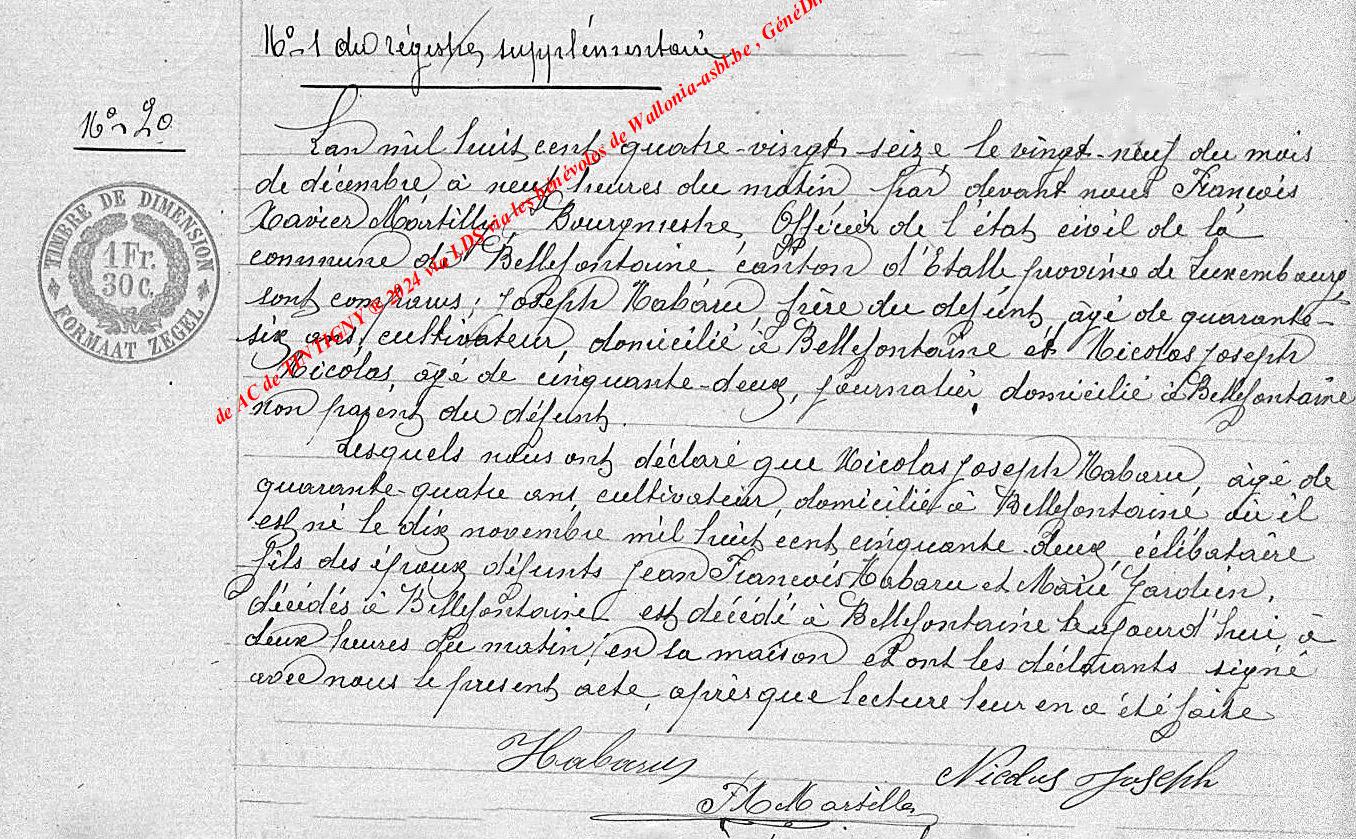 N° 1 du régistre supplémentaire
N° 20
L'an mil huit cent quatre-vingt seize le vingt-neuf du mois
de décembre à neuf heures du matin par devant nous François
Xavier Martilly Bourgmestre, Officier de l'état civil de la
commune de Bellefontaine canton d'Etalle province de Luxembourg
sont comparus; Joseph Habaru, frère du defunt, âgé de quarante-
six ans, cultivateur, domicilié à Bellefontaine et Nicolas Joseph
Nicolas, âgé de cinquante-deux, journalier, domicilié à Bellefontaine
non parent du défunt.
Lesquels nous ont déclaré que Nicolas Joseph Habaru, âgé de
quarante-quatre ans cultivateur, domicilié à Bellefontaine où il
est né le dix novembre mil huit cent cinquante deux, célibataire
fils des époux défunts Jean François Habaru et Marie Jardien,
décédés à Bellefontaine est décédé à Bellefontaine aujourd'hui à
deux heures du matin, en sa maison et ont les déclarants signé
avec nous le present acte, après que lecture leur en a été faite
Habaru
Nicolas Joseph
FX Martilly
TIMBRE DE DIMENSION
1 Fr.
30 C.
FORMAAT ZEGEL
de AC de TINTIGNY ® 2024 via LDS via les bénévoles de Wallonia-asbl.be , GénéDi